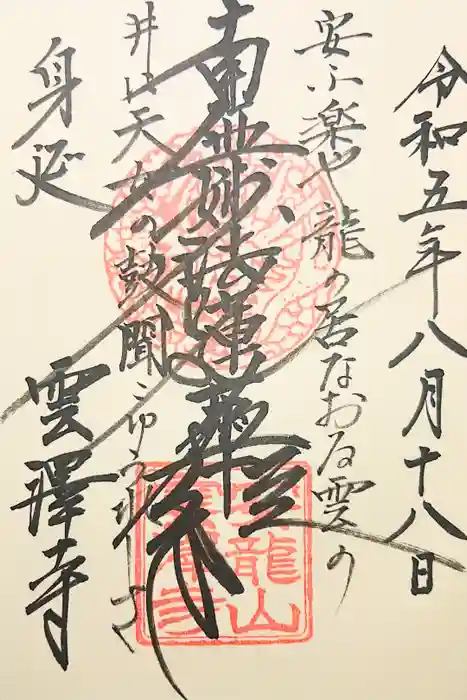 令和五年八月十八日
安ふ楽や龍の居なおる雲の
南無妙法蓮華経
天女の鼓聞こゆ
身延
雲澤寺
雲龍山
雲澤寺